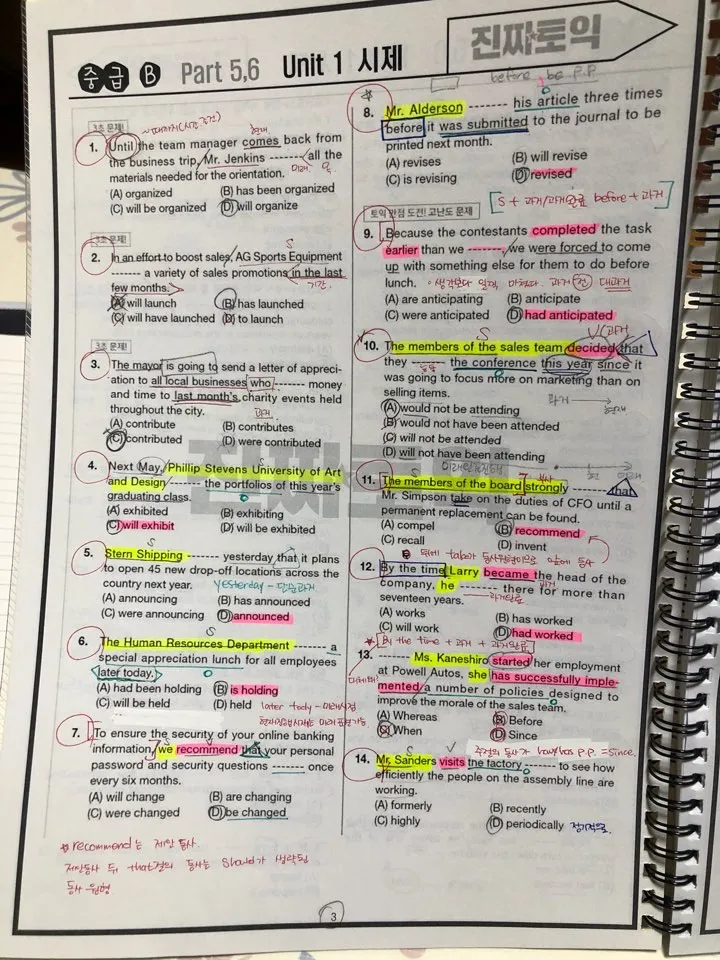 중급 B Part 5,6 Unit 1 시제
진짜토익
3초 문제!
1. Until the team manager comes back from
the business trip, Mr. Jenkins ------- all the
materials needed for the orientation.
(A) organized (B) has been organized
(C) will be organized (D) will organize
3초 문제!
2. In an effort to boost sales, AG Sports Equipment
------- a variety of sales promotions in the last
few months.
기간.
(A) will launch (B) has launched
(C) will have launched (D) to launch
3초 문제!
3. The mayor is going to send a letter of appreci-
ation to all local businesses who ------- money
and time to last month's charity events held
throughout the city.
과거.
(A) contribute (B) contributes
(C) contributed (D) were contributed
4. Next May, Phillip Stevens University of Art
and Design ------- the portfolios of this year's
graduating class.
(A) exhibited (B) exhibiting
(C) will exhibit (D) will be exhibited
5. Stern Shipping ------- yesterday that it plans
to open 45 new drop-off locations across the
country next year.
yesterday - 단순과거
(A) announcing (B) has announced
(C) were announcing (D) announced
6. The Human Resources Department ------- a
special appreciation lunch for all employees
later today.
(A) had been holding (B) is holding
(C) will be held (D) held
later tody - 미래시점
현재진행시제는 미래 표현가능
7. To ensure the security of your online banking
information, we recommend that your personal
password and security questions ------- once
every six months.
(A) will change (B) are changing
(C) were changed (D) be changed
* recommend는 제안 동사.
제안동사 뒤 that절의 동사는 should가 생략된
동사 원형.
before be p.p
8. Mr. Alderson ------- his article three times
before it was submitted to the journal to be
printed next month.
(A) revises (B) will revise
(C) is revising (D) revised
[S + 과거/과거완료 before + 과거]
토익 만점 도전! 고난도 문제
9. Because the contestants completed the task
earlier than we -------, we were forced to come
up with something else for them to do before
lunch.
(A) are anticipating (B) anticipate
(C) were anticipated (D) had anticipated
10. The members of the sales team decided that
they ------- the conference this year since it
was going to focus more on marketing than on
selling items.
(A) would not be attending
(B) would not have been attended
(C) will not be attended
(D) will not have been attended
11. The members of the board strongly -------
that
Mr. Simpson take on the duties of CFO until a
permanent replacement can be found.
(A) compel (B) recommend
(C) recall (D) invent
12. By the time Larry became the head of the
company, he ------- there for more than
seventeen years.
과거완료
(A) works (B) has worked
(C) will work (D) had worked
* [By the time + 과거 + 과거완료]
13. ------- Ms. Kaneshiro started her employment
at Powell Autos, she has successfully imple-
mented a number of policies designed to
improve the morale of the sales team.
(A) Whereas (B) Before
(C) When (D) Since
주절의 동사가 have/has p.p. = since.
14. Mr. Sanders visits the factory ------- to see how
efficiently the people on the assembly line are
working.
(A) formerly (B) recently
(C) highly (D) periodically 정기적으로
3